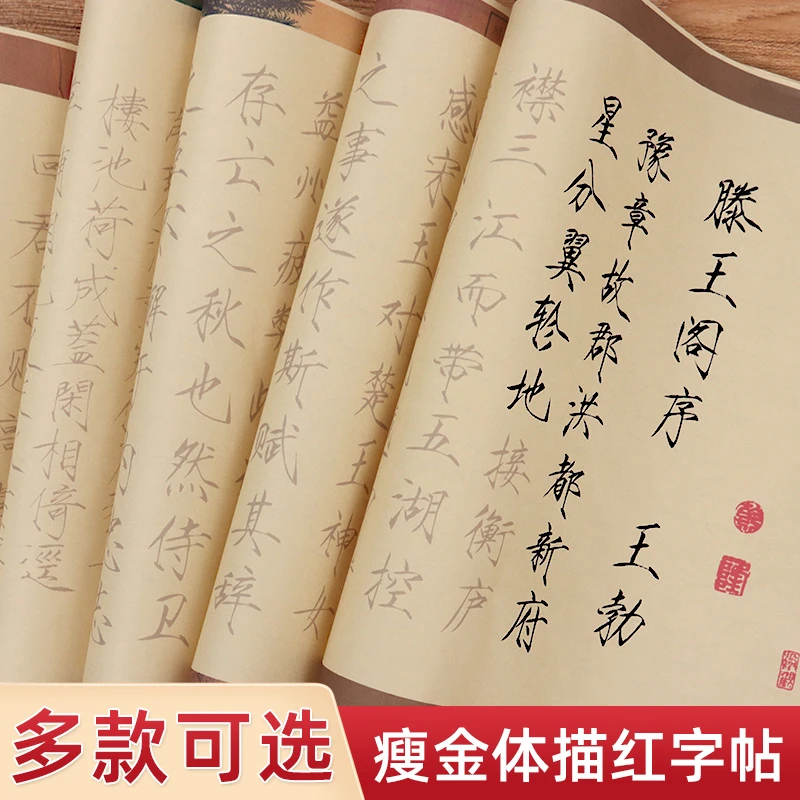 滕王阁序 王勃
豫章故郡洪都新府
星分翼轸地接衡庐
襟三江而带五湖控
感宋玉对楚王神女
之事遂作斯赋其辞
益州疲弊此
存亡之秋也然侍卫
樓池荷成蓋閑相倚逕
君不见高
多款可选
瘦金体描红字帖